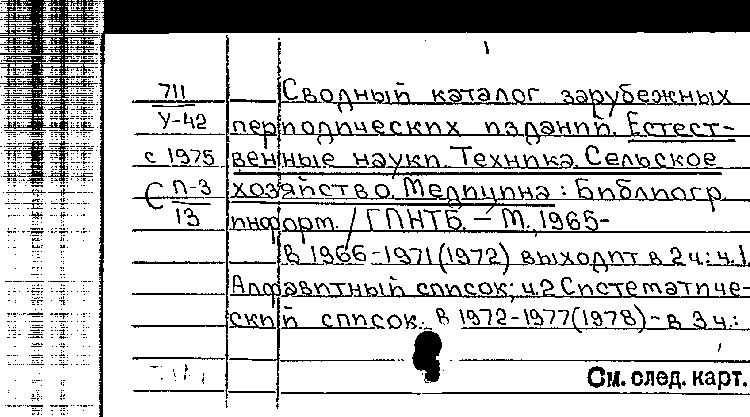 1
711
У-42
с 1975
С П-3
13
Сводный каталог зарубежных
периодических изданий. Естест-
венные науки. Техника. Сельское
хозяйство. Медицина: Библиогр.
информ. / ГПНТБ. – М., 1965-
В 1966-1971(1972) выходит в 2 ч: ч.1
Алфавитный список; ч.2 Системати­че-
ский список. В 1972-1977(1978) - в 3 ч.:
См. след. карт.